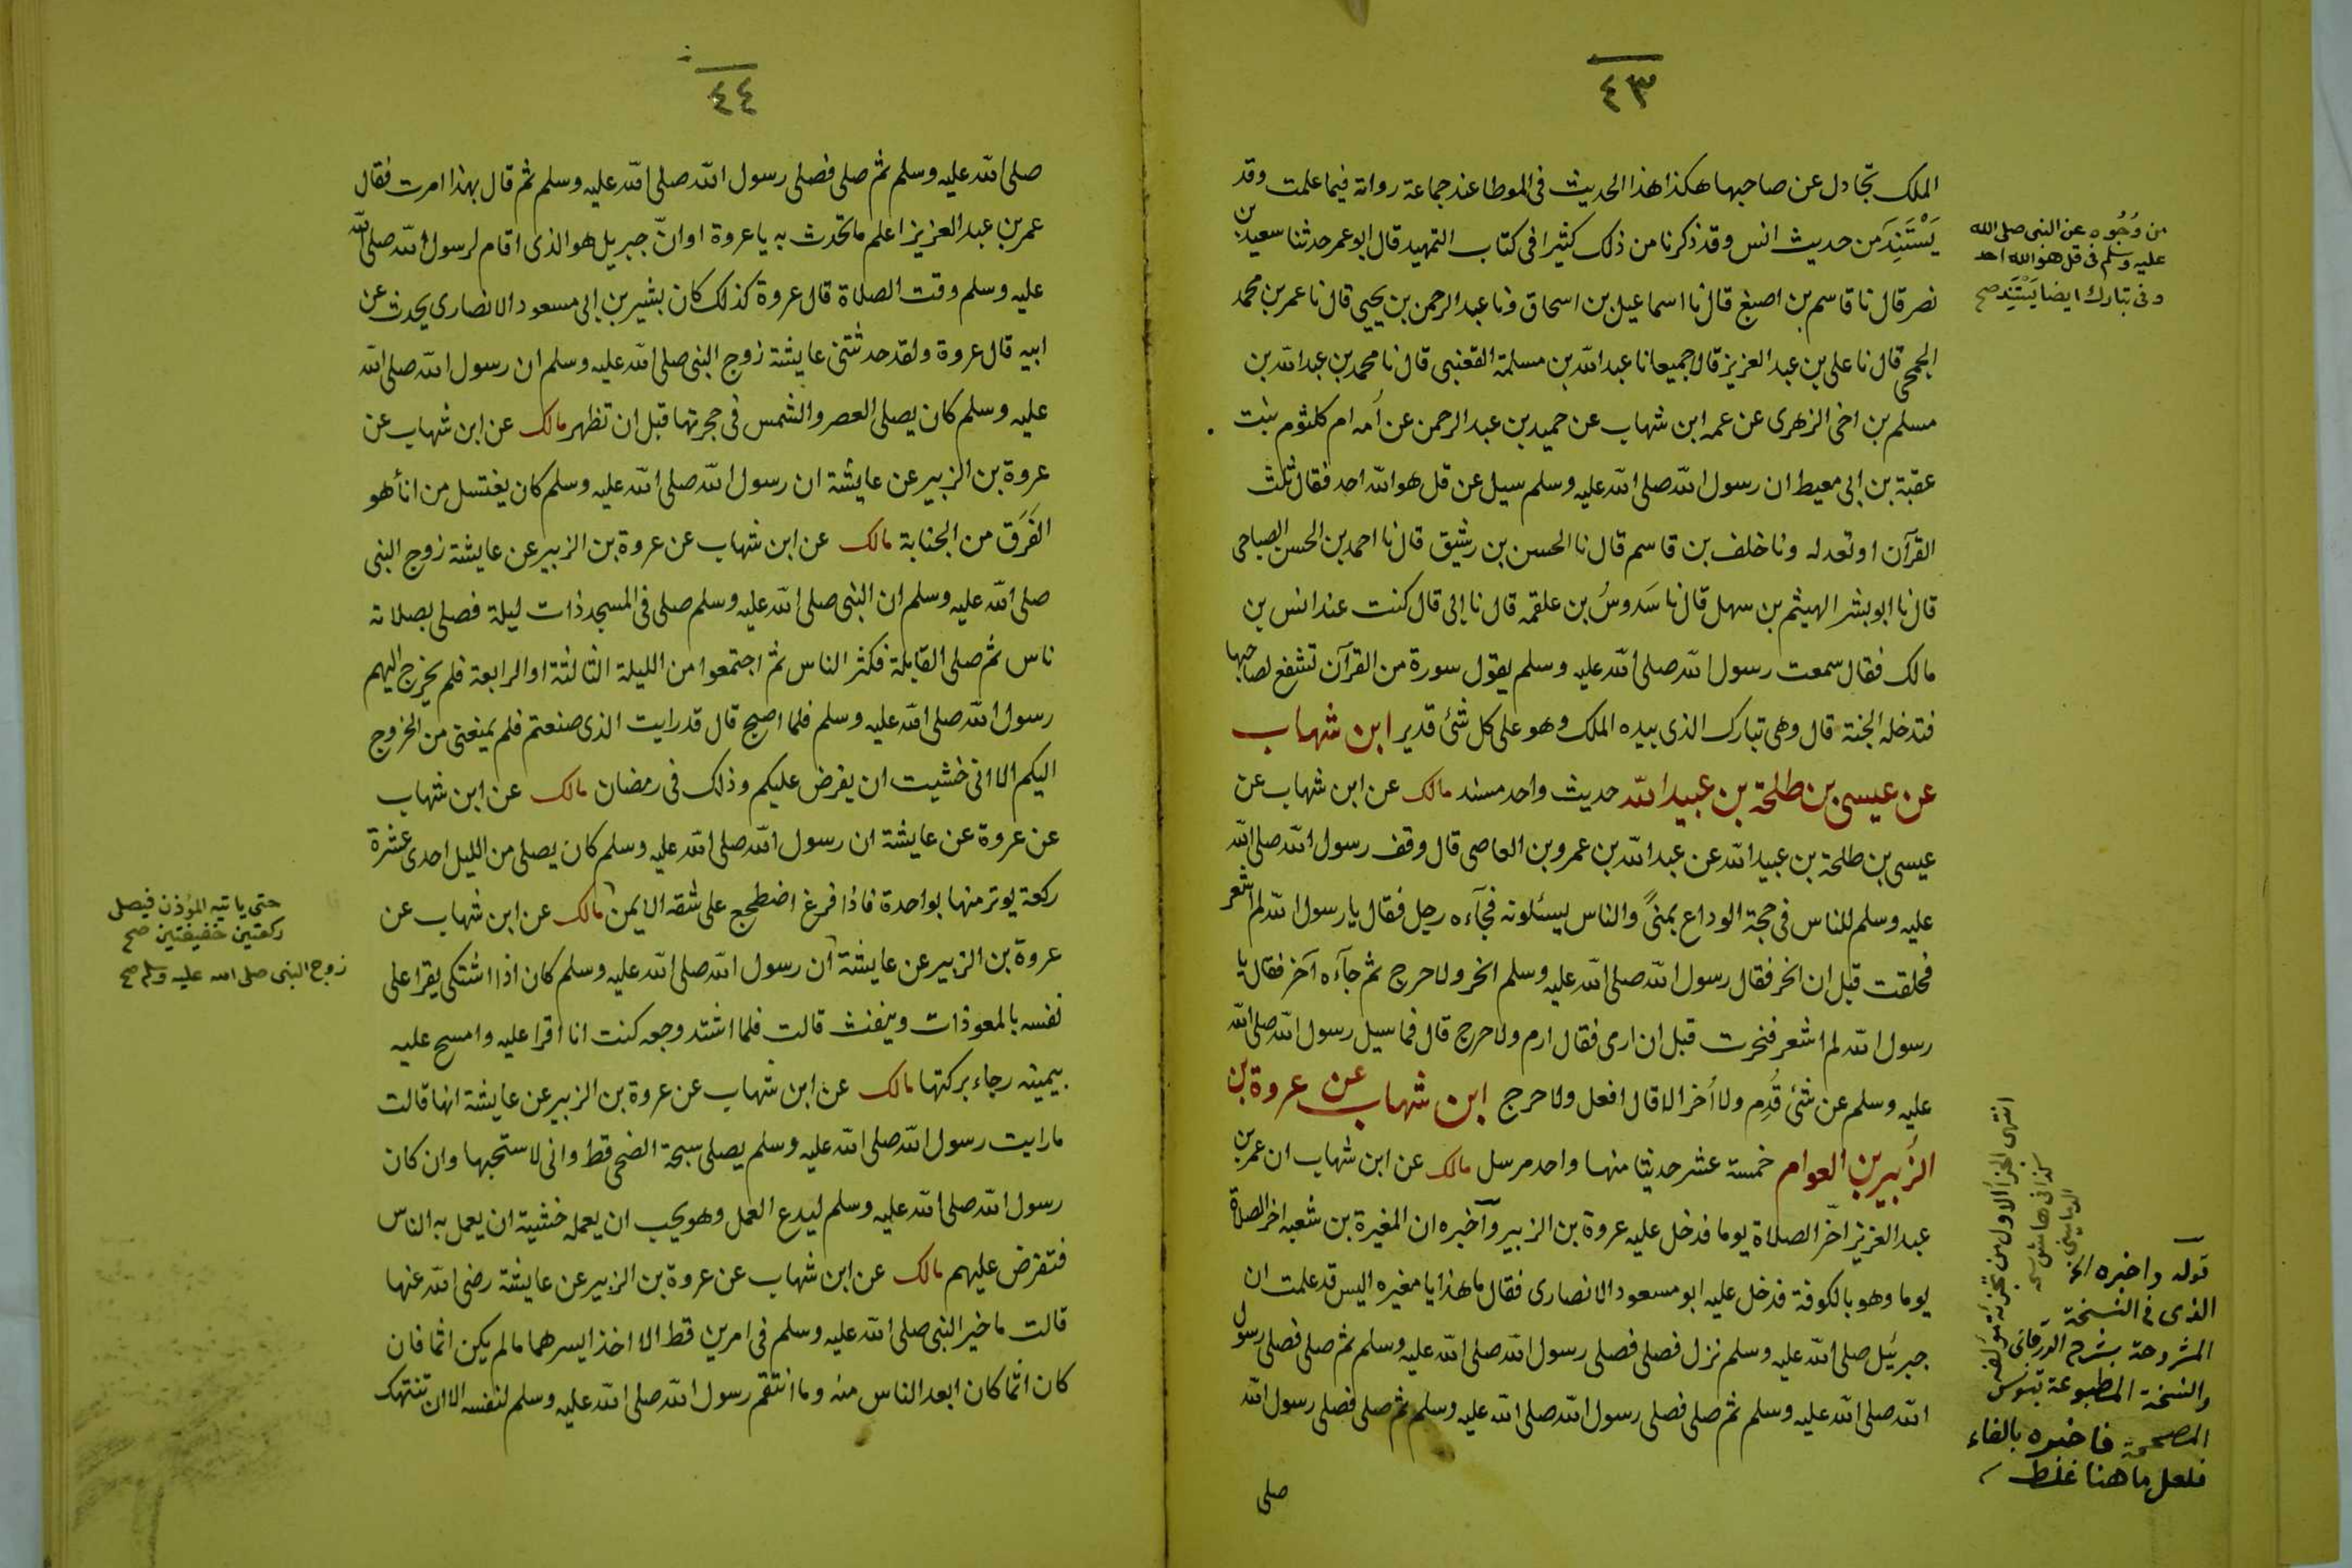 ٤٣
الملك تجادل عن صاحبها هكذا هذا الحديث فى الموطا عند جماعة رواته فيما علمت وقد
يَسْتَنِدَ من حديث انس وقد ذكرنا من ذلك كثيرا فى كتاب التمهيد قال ابو عمر حدثنا سعيد بن
نصر قال نا قاسم بن اصبغ قال نا اسماعيل بن اسحاق ونا عبد الرحمن بن يحيى قال نا عمر بن محمد
الجمحى قال نا على بن عبد العزيز قالا جميعا نا عبد الله بن مسلمة القعنبى قال نا محمد بن عبد الله بن
مسلم بن اخى الزهرى عن عمه ابن شهاب عن حميد بن عبد الرحمن عن أمه ام كلثوم بنت
عقبة بن ابى معيط ان رسول الله صلى الله عليه وسلم سيل عن قل هو الله احد فقال ثلث
القرآن او تعدله ونا خلف بن قاسم قال نا الحسن بن رشيق قال نا احمد بن الحسن الصباحى
قال نا ابو بشر الهيثم بن سهل قال نا سَدوسُ بن علقمه قال نا ابى قال كنت عند انس بن
مالك فقال سمعت رسول الله صلى الله عليه وسلم يقول سورة من القرآن تشفع لصاحبها
فتدخله الجنة قال وهى تبارك الذى بيده الملك وهو على كل شئ قدير ابن شهاب
عن عيسى بن طلحة بن عبيد الله حديث واحد مسند مالك عن ابن شهاب عن
عيسى بن طلحة بن عبيد الله عن عبد الله بن عمرو بن العاصى قال وقف رسول الله صلى الله
عليه وسلم للناس فى حجة الوداع بمنىً والناس يسئلونه فجآءه رجل فقال يا رسول الله لم اشعر
فحلقت قبل ان انحر فقال رسول الله صلى الله عليه وسلم انحر ولا حرج ثم جآءه آخر فقال يا
رسول الله لم اشعر فنحرت قبل ان ارى فقال ارم ولا حرج قال فما سيل رسول الله صلى الله
عليه وسلم عن شئ قُدِم ولا أخر الا قال افعل ولا حرج ابن شهاب عن عروة بن
الزبير بن العوام خمسة عشر حديثا منها واحد مرسل مالك عن ابن شهاب ان عمر بن
عبد العزيز اخّر الصلاة يوما فدخل عليه عروة بن الزبير وآخبره ان المغيرة بن شعبه اخر الصلاة
يوما وهو بالكوفة فدخل عليه ابو مسعود الانصارى فقال ما هذا يا مغيره اليس قد علمت ان
جبرئيل صلى الله عليه وسلم نزل فصلى فصلى رسول الله صلى الله عليه وسلم ثم صلى فصلى رسول
الله صلى الله عليه وسلم ثم صلى فصلى رسول الله صلى الله عليه وسلم ثم صلى فصلى رسول الله
صلى
من وُجُوه عن النبى صلى الله
عليه وسلم فى قل هو الله احد
وفى تبارك ايضا يَسْتَنِد صح
انتهى الجزأ الاول من تجزئة مؤلفه
كذا فى هامش نسخة
قوله واخبره الخ
الذى فى النسخة
المشروحة بشرح الزرقانى
والنسخة المطبوعة بتونس
المصححة فاخبره بالفاء
فلعل ما هنا غلط
٤٤
صلى الله عليه وسلم ثم صلى فصلى رسول الله صلى الله عليه وسلم ثم قال بهذا امرت فقال
عمر بن عبد العزيز اعلم ما تحدث به يا عروة او انّ جبريل هو الذى اقام لرسول الله صلى الله
عليه وسلم وقت الصلاة قال عروة كذلك كان بشير بن ابى مسعود الانصارى يحدث عن
ابيه قال عروة ولقد حدثتنى عايشة زوج النبى صلى الله عليه وسلم ان رسول الله صلى الله
عليه وسلم كان يصلى العصر والشمس فى حجرتها قبل ان تظهر مالك عن ابن شهاب عن
عروة بن الزبير عن عايشة ان رسول الله صلى الله عليه وسلم كان يغتسل من انأ هو
الفَرَق من الجنابة مالك عن ابن شهاب عن عروة بن الزبير عن عايشة زوج النبى
صلى الله عليه وسلم ان النبى صلى الله عليه وسلم صلى فى المسجد ذات ليلة فصلى بصلاته
ناس ثم صلى القابلة فكثر الناس ثم اجتمعوا من الليلة الثالثة او الرابعة فلم يخرج اليهم
رسول الله صلى الله عليه وسلم فلما اصبح قال قد رايت الذى صنعتم فلم يمنعنى من الخروج
اليكم الا انى خشيت ان يفرض عليكم وذلك فى رمضان مالك عن ابن شهاب
عن عروة عن عايشة ان رسول الله صلى الله عليه وسلم كان يصلى من الليل احدى عشرة
ركعة يوتر منها بواحدة فاذا فرغ اضطجع على شقه الايمن مالك عن ابن شهاب عن
عروة بن الزبير عن عايشة ان رسول الله صلى الله عليه وسلم كان اذا اشتكى يقرا على
نفسه بالمعوذات وينفث قالت فلما اشتد وجعه كنت انا اقرا عليه وامسح عليه
بيمينه رجاء بركتها مالك عن ابن شهاب عن عروة بن الزبير عن عايشة انها قالت
ما رايت رسول الله صلى الله عليه وسلم يصلى سبحة الضحى قط وانى لاستحبها وان كان
رسول الله صلى الله عليه وسلم ليدع العمل وهو يحب ان يعمله خشية ان يعمل به الناس
فتفرض عليهم مالك عن ابن شهاب عن عروة بن الزبير عن عايشة رضى الله عنها
قالت ما خير النبى صلى الله عليه وسلم فى امرين قط الا اخذ ايسرهما ما لم يكن اثما فان
كان اثما كان ابعد الناس منه وما انتقم رسول الله صلى الله عليه وسلم لنفسه الا ان تنتهك
حتى ياتيه المؤذن فيصلى
ركعتين خفيفتين صح
زوج النبى صلى الله عليه وسلم صح